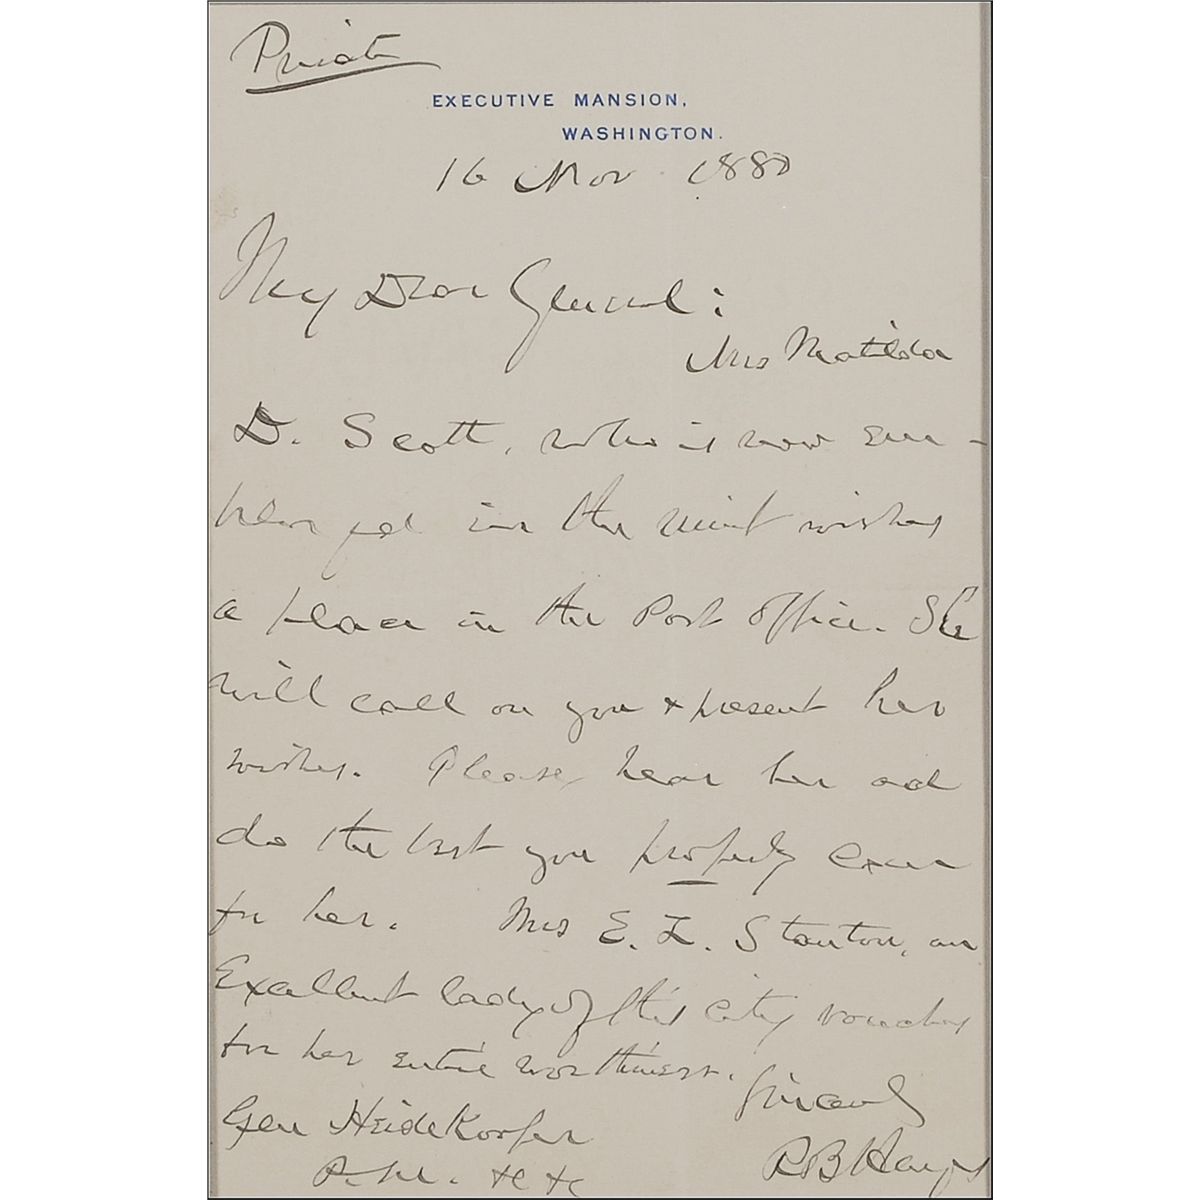 Private
EXECUTIVE MANSION,
WASHINGTON.
16 Nov. 1880
My Dear General:
Mrs Matilda
D. Scott, who is now em-
ployed in the mint wishes
a place in the Post Office. She
will call on you & present her
wishes. Please hear her and
do the best you properly can
for her. Mrs E. L. Stanton, an
Excellent lady of this city vouches
for her entire worthiness.
Sincerely
Gen HeideKoper
P.M. &c &c
R B Hayes